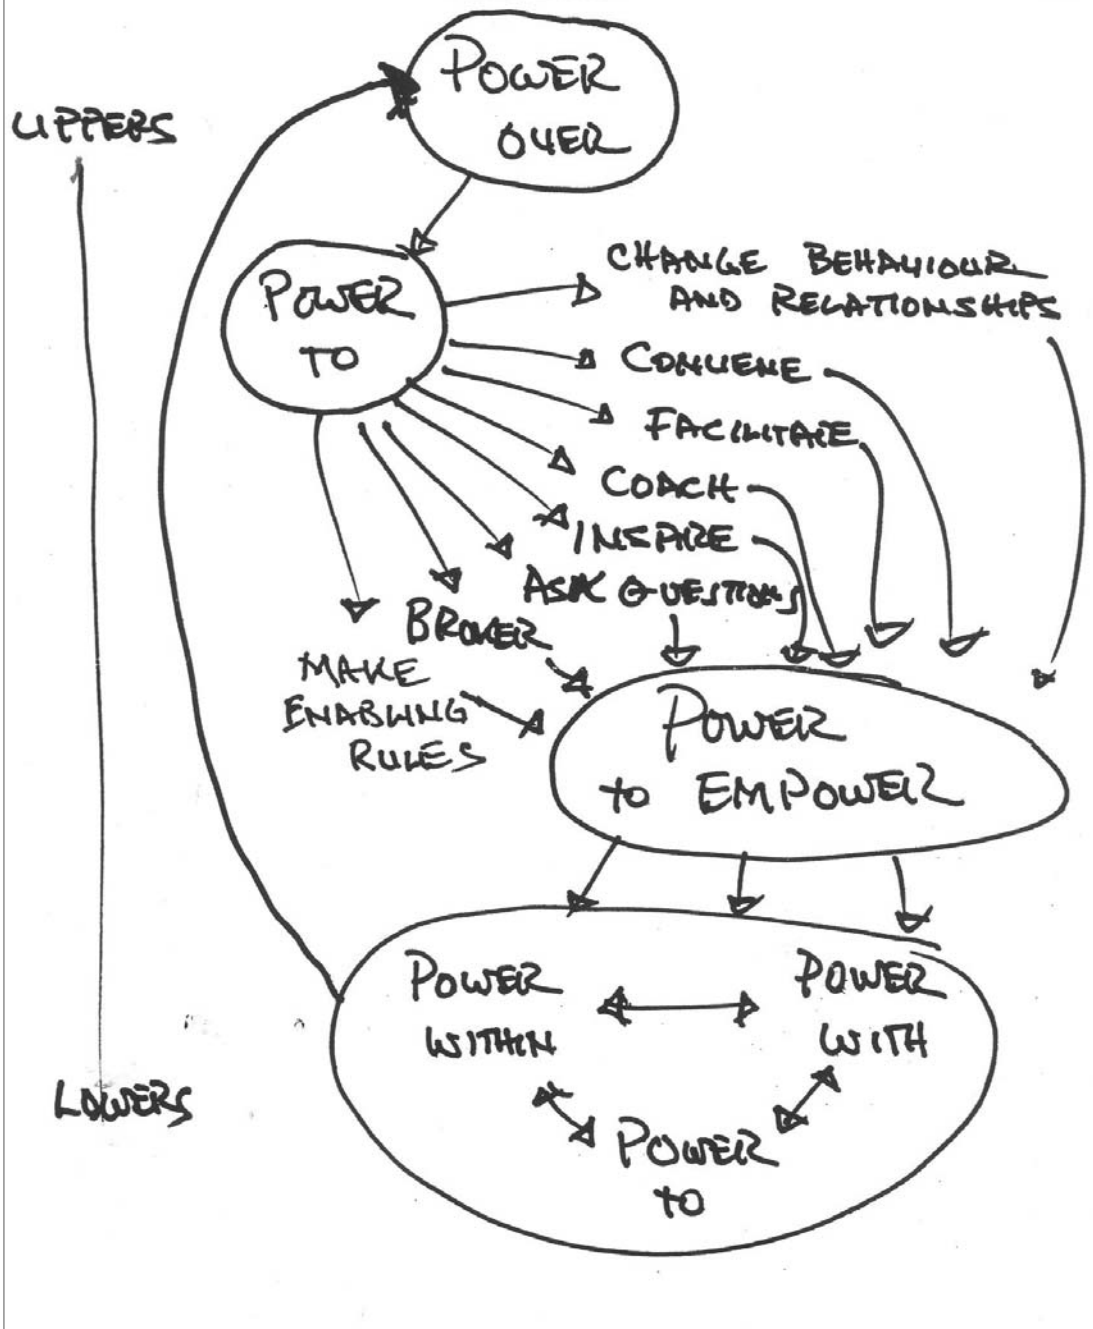 POWER
OVER
UPPERS
POWER
TO
CHANGE BEHAVIOUR
AND RELATIONSHIPS
CONVENE
FACILITATE
COACH
INSPIRE
ASK QUESTIONS
BROKER
MAKE
ENABLING
RULES
POWER
to EMPOWER
POWER
WITHIN
POWER
WITH
LOWERS
POWER
TO